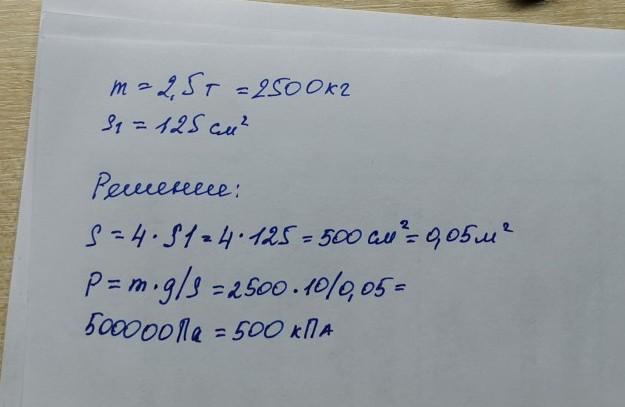 m = 2,5т = 2500кг
S1 = 125 см²
Решение:
S = 4 · S1 = 4 · 125 = 500 см² = 0,05м²
P = m · g/S = 2500 · 10/0,05 =
500000Па = 500 кПА